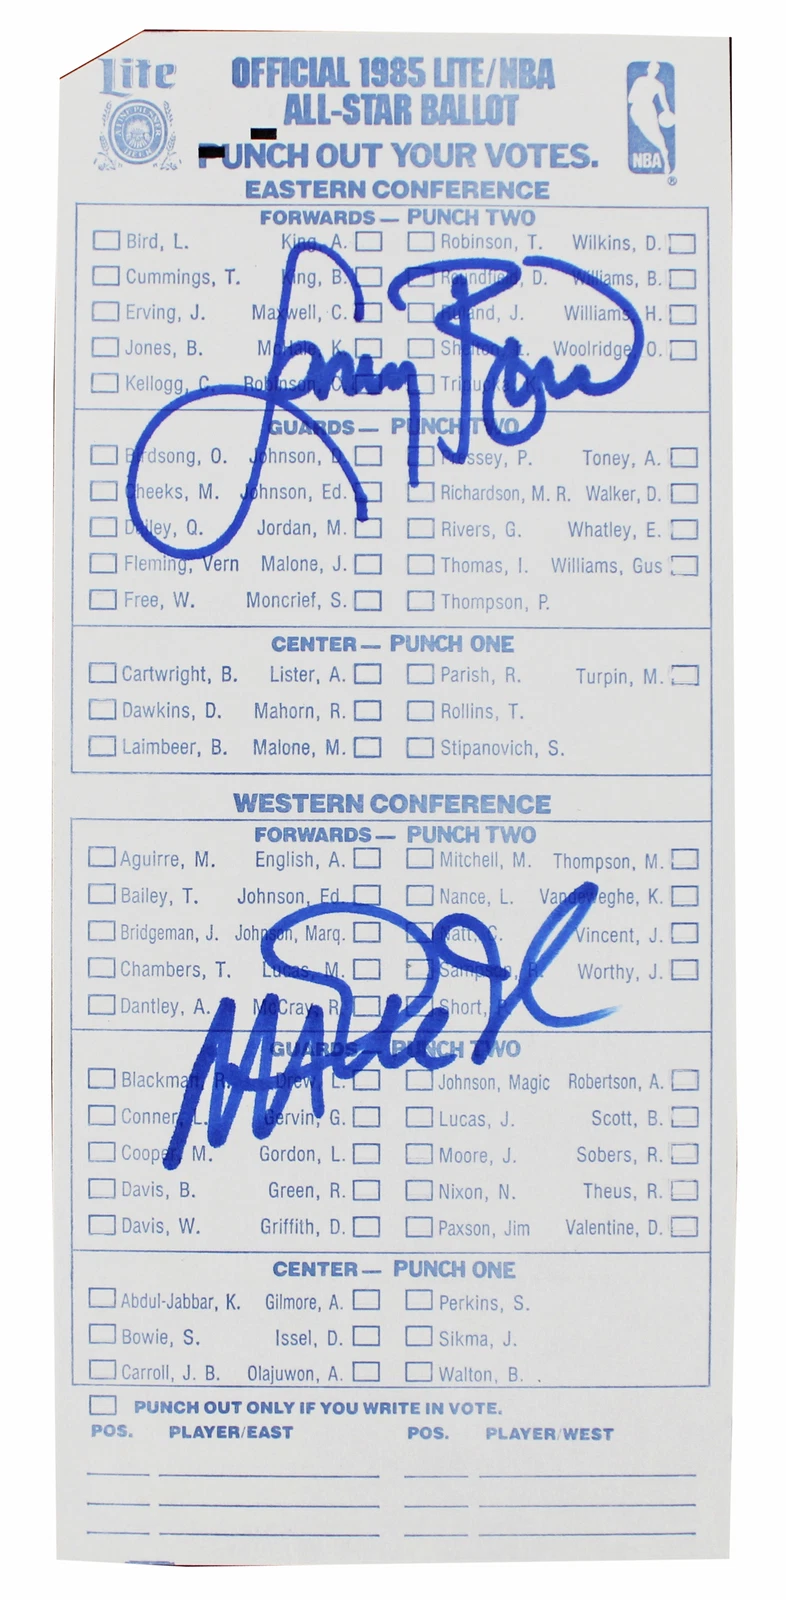 Lite OFFICIAL 1985 LITE/NBA
ALL-STAR BALLOT
PUNCH OUT YOUR VOTES.
NBA ®
A FINE PILSNER BEER
EASTERN CONFERENCE
FORWARDS — PUNCH TWO
Bird, L. King, A. Robinson, T. Wilkins, D.
Cummings, T. King, B. Roundfield, D. Williams, B.
Erving, J. Maxwell, C. Ruland, J. Williams, H.
Jones, B. McHale, K. Shelton, L. Woolridge, O.
Kellogg, C. Robinson, C. Tripucka, K.
Larry Bird
GUARDS — PUNCH TWO
Birdsong, O. Johnson, D. Pressey, P. Toney, A.
Cheeks, M. Johnson, Ed. Richardson, M. R. Walker, D.
Dailey, Q. Jordan, M. Rivers, G. Whatley, E.
Fleming, Vern Malone, J. Thomas, I. Williams, Gus
Free, W. Moncrief, S. Thompson, P.
CENTER — PUNCH ONE
Cartwright, B. Lister, A. Parish, R. Turpin, M.
Dawkins, D. Mahorn, R. Rollins, T.
Laimbeer, B. Malone, M. Stipanovich, S.
WESTERN CONFERENCE
FORWARDS — PUNCH TWO
Aguirre, M. English, A. Mitchell, M. Thompson, M.
Bailey, T. Johnson, Ed. Nance, L. Vandeweghe, K.
Bridgeman, J. Johnson, Marq. Natt, C. Vincent, J.
Chambers, T. Lucas, M. Sampson, R. Worthy, J.
Dantley, A. McCray, R. Short, P.
Magic Johnson
GUARDS — PUNCH TWO
Blackman, R. Drew, L. Johnson, Magic Robertson, A.
Conner, L. Gervin, G. Lucas, J. Scott, B.
Cooper, M. Gordon, L. Moore, J. Sobers, R.
Davis, B. Green, R. Nixon, N. Theus, R.
Davis, W. Griffith, D. Paxson, Jim Valentine, D.
CENTER — PUNCH ONE
Abdul-Jabbar, K. Gilmore, A. Perkins, S.
Bowie, S. Issel, D. Sikma, J.
Carroll, J. B. Olajuwon, A. Walton, B.
PUNCH OUT ONLY IF YOU WRITE IN VOTE.
POS. PLAYER/EAST POS. PLAYER/WEST